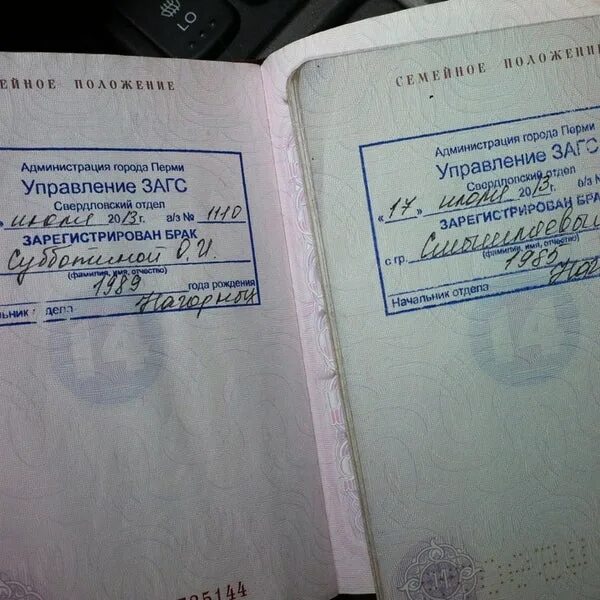 LO
ЕЙНОЕ ПОЛОЖЕНИЕ
Администрация города Перми
Управление ЗАГС
Свердловский отдел
» июля 2013 г. а/з № 1110
ЗАРЕГИСТРИРОВАН БРАК
Субботиной О.И.
(фамилия, имя, отчество)
1989 года рождения
ьник отдела Нагорных
14
35144
СЕМЕЙНОЕ ПОЛОЖЕНИЕ
Администрация города Перми
Управление ЗАГС
Свердловский отдел
«17» июля 2013 г.
ЗАРЕГИСТРИРОВАН БРАК
с гр.
(фамилия, имя, отчество)
1985
Начальник отдела
14